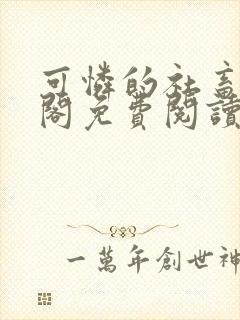 可憐的社畜
閣免費閱讀
一萬年創世神